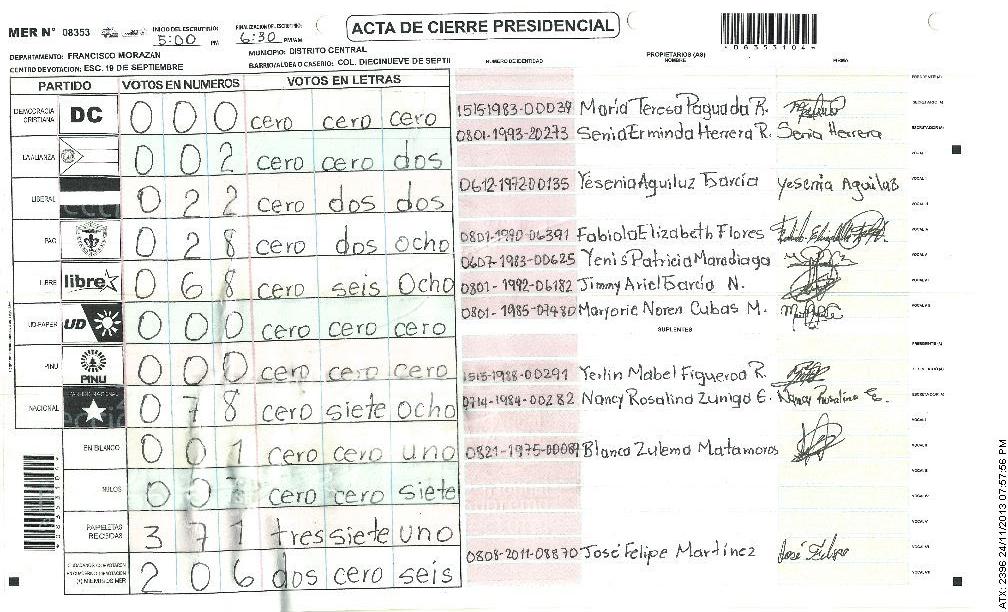 MER N° 08353 INICIO DEL ESCRUTINIO: 5:00 PM FINALIZACION DE ESCRUTINIO: 6:30 PM/AM
ACTA DE CIERRE PRESIDENCIAL
DEPARTAMENTO: FRANCISCO MORAZÁN MUNICIPIO: DISTRITO CENTRAL
CENTRO DE VOTACION: ESC. 19 DE SEPTIEMBRE BARRIO/ALDEA O CASERIO: COL. DIECINUEVE DE SEPTII
PARTIDO VOTOS EN NUMEROS VOTOS EN LETRAS
DEMOCRACIA CRISTIANA DC 0 0 0 cero cero cero
LA ALIANZA 0 0 2 cero cero dos
LIBERAL 0 2 2 cero dos dos
PAC 0 2 8 cero dos ocho
LIBRE libre 0 6 8 cero seis ocho
UD-FAPER UD 0 0 0 cero cero cero
PINU PINU 0 0 0 cero cero cero
NACIONAL 0 7 8 cero siete ocho
EN BLANCO 0 0 1 cero cero uno
NULOS 0 0 7 cero cero siete
PAPELETAS RECIBIDAS 3 7 1 tres siete uno
2 0 6 dos cero seis
NUMERO DE IDENTIDAD PROPIETARIOS (AS) NOMBRE FIRMA
1515-1983-00039 María Teresa Paguada R.
0801-1993-20273 Senia Erminda Herrera R. Senia Herrera
0612-197200135 Yesenia Aguiluz García Yesenia Aguiluz
0801-1990-06391 Fabiola Elizabeth Flores
0607-1983-00625 Yenis Patricia Maradiaga
0801-1992-06182 Jimmy Ariel García N.
0801-1985-07480 Marjorie Noren Cubas M.
SUPLENTES
1515-1988-00291 Yeilin Mabel Figueroa R.
0714-1984-00282 Nancy Rosalina Zuniga E. Nancy Rosalina E.
0821-1975-00089 Blanca Zulema Matamoros
0808-2011-08870 José Felipe Martínez José Felipe
ATX: 2396 24/11/2013 07:57:56 PM